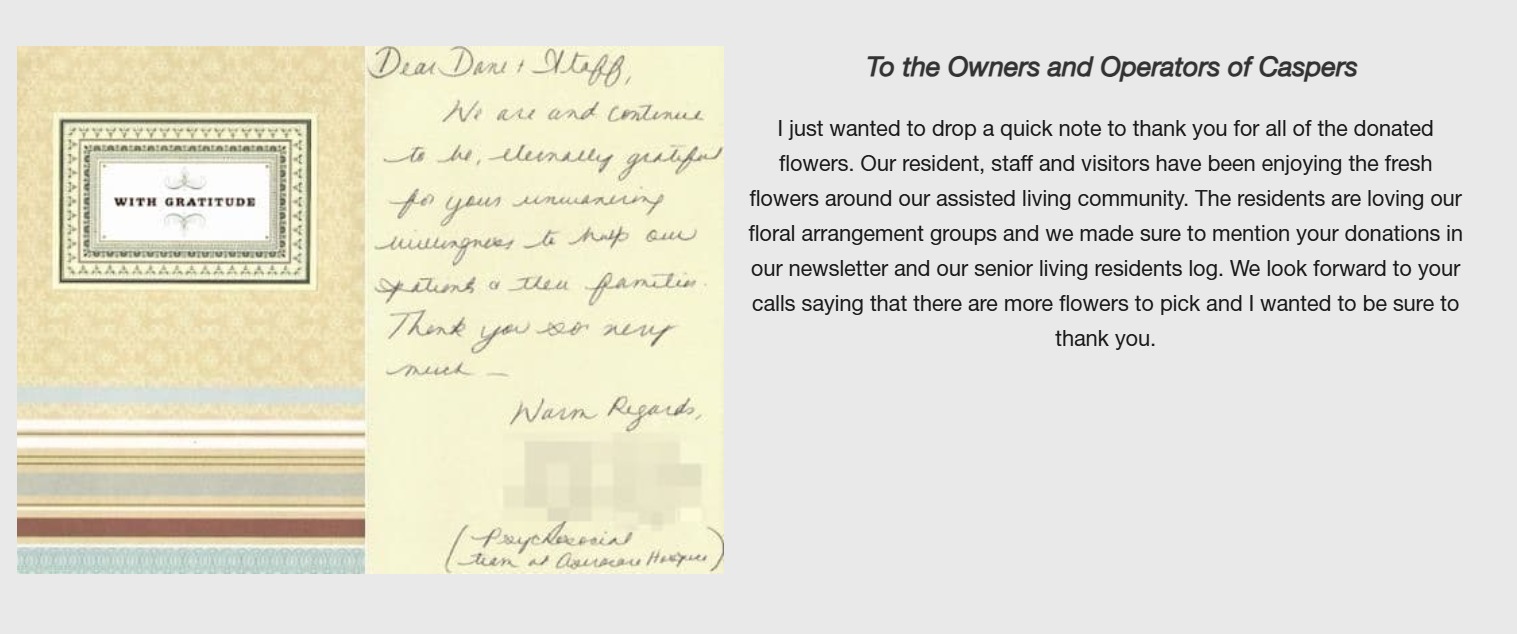 WITH GRATITUDE
Dear Dane + Staff,
We are and continue
to be, eternally grateful
for your unwavering
willingness to help our
patients & their families.
Thank you so very
much —
Warm Regards,
(Psychosocial
team at Hospice)
To the Owners and Operators of Caspers
I just wanted to drop a quick note to thank you for all of the donated
flowers. Our resident, staff and visitors have been enjoying the fresh
flowers around our assisted living community. The residents are loving our
floral arrangement groups and we made sure to mention your donations in
our newsletter and our senior living residents log. We look forward to your
calls saying that there are more flowers to pick and I wanted to be sure to
thank you.